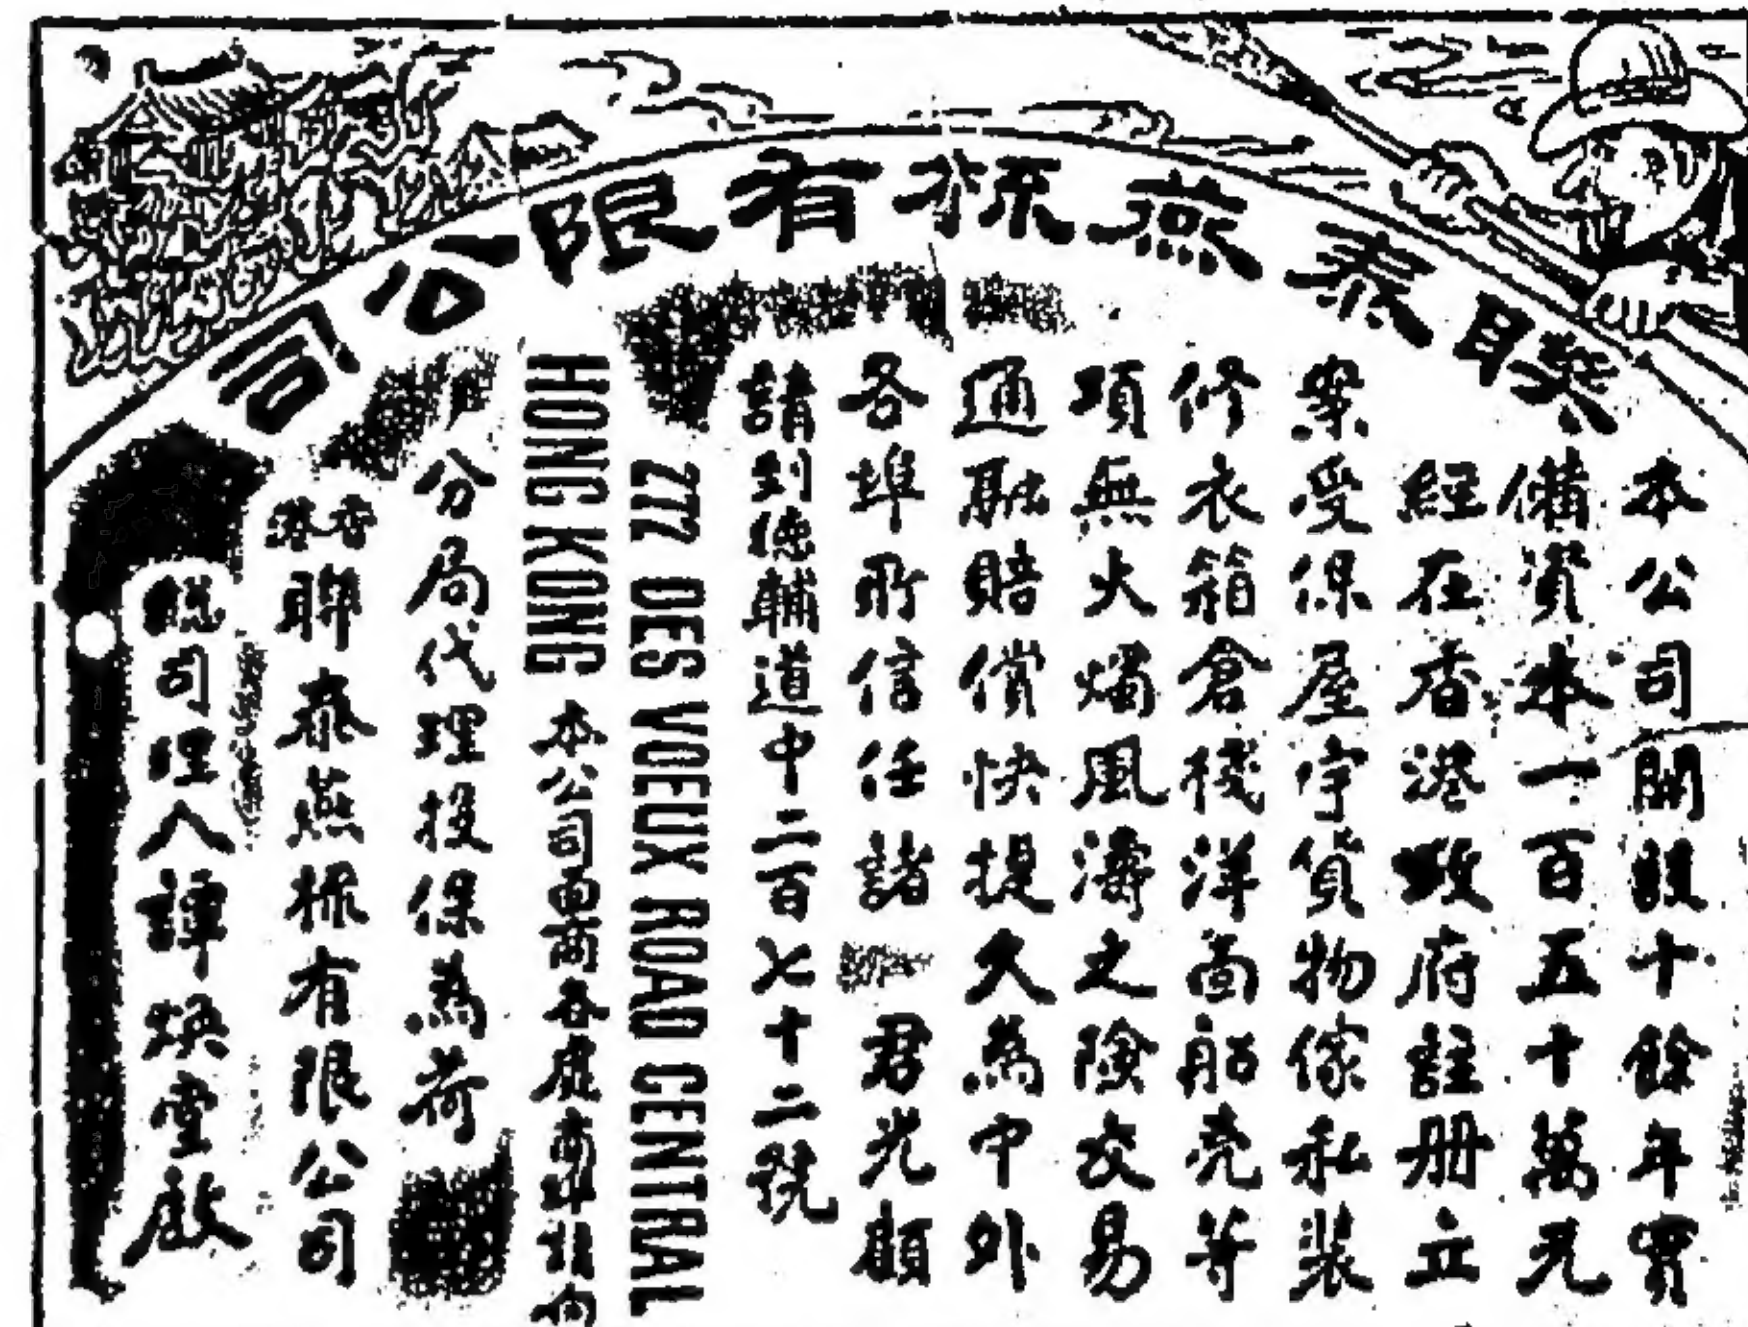 聯泰燕梳有限公司
本公司開設十餘年實
備資本一百五十萬元
經在香港政府註册立
案受保屋宇貨物傢私裝
修衣箱倉棧洋面船壳等
項無火燭風濤之險交易
通融賠償快捷久為中外
各埠所信任諸 君光顧
請到德輔道中二百七十二號
272 DES VOEUX ROAD CENTRAL
HONG KONG 本公司 各處
分局代理投保為荷
香港聯泰燕梳有限公司
總司理人譚煥堂啟